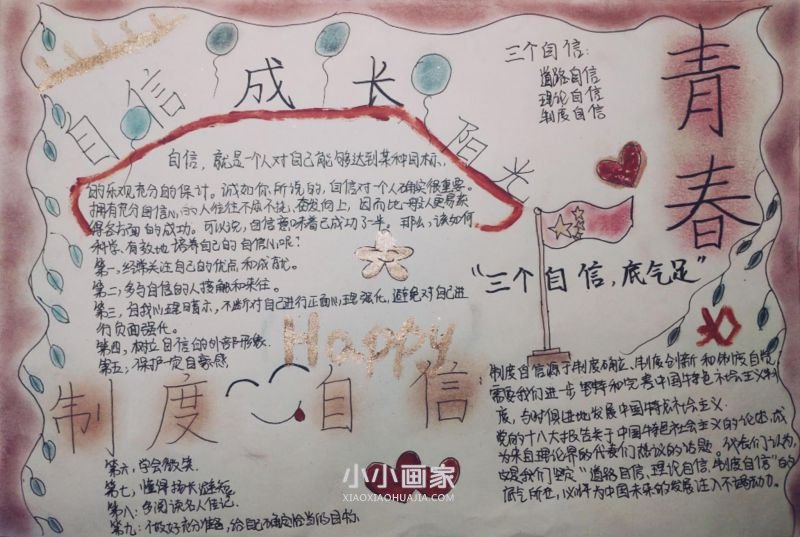 自信 成长 阳光
三个自信:
道路自信
理论自信
制度自信
青春
自信,就是一个人对自己能够达到某种目标,
的乐观充分的估计。诚如你所说的,自信对一个人确实很重要。
拥有充分自信心的人往往不屈不挠、奋发向上,因而比一般人更易获
得各方面的成功。可以说,自信意味着已成功了一半。那么,该如何
科学、有效地培养自己的自信心呢?
第一,经常关注自己的优点和成就。
第二,多与自信的人接触和来往。
第三,自我心理暗示,不断对自己进行正面心理强化,避免对自己进
行负面强化。
第四,树立自信的外部形象.
第五,保护一定自豪感
"三个自信,底气足"
Happy
制度自信
第六,学会微笑.
第七,懂得扬长避短.
第八:多阅读名人传记.
第九:做好充分准备,给自己确定恰当的目标
制度自信源于制度确立、制度创新和制度自觉,
需要我们进一步坚持和完善中国特色社会主义制
度,与时俱进地发展中国特色社会主义.
党的十八大报告关于中国特色社会主义的论述,成
为来自理论界的代表们热议的话题。代表们认为,
这是我们坚定"道路自信、理论自信、制度自信"的
底气所在,必将为中国未来的发展注入不竭动力。
小小画家
XIAOXIAOHUAJIA.COM